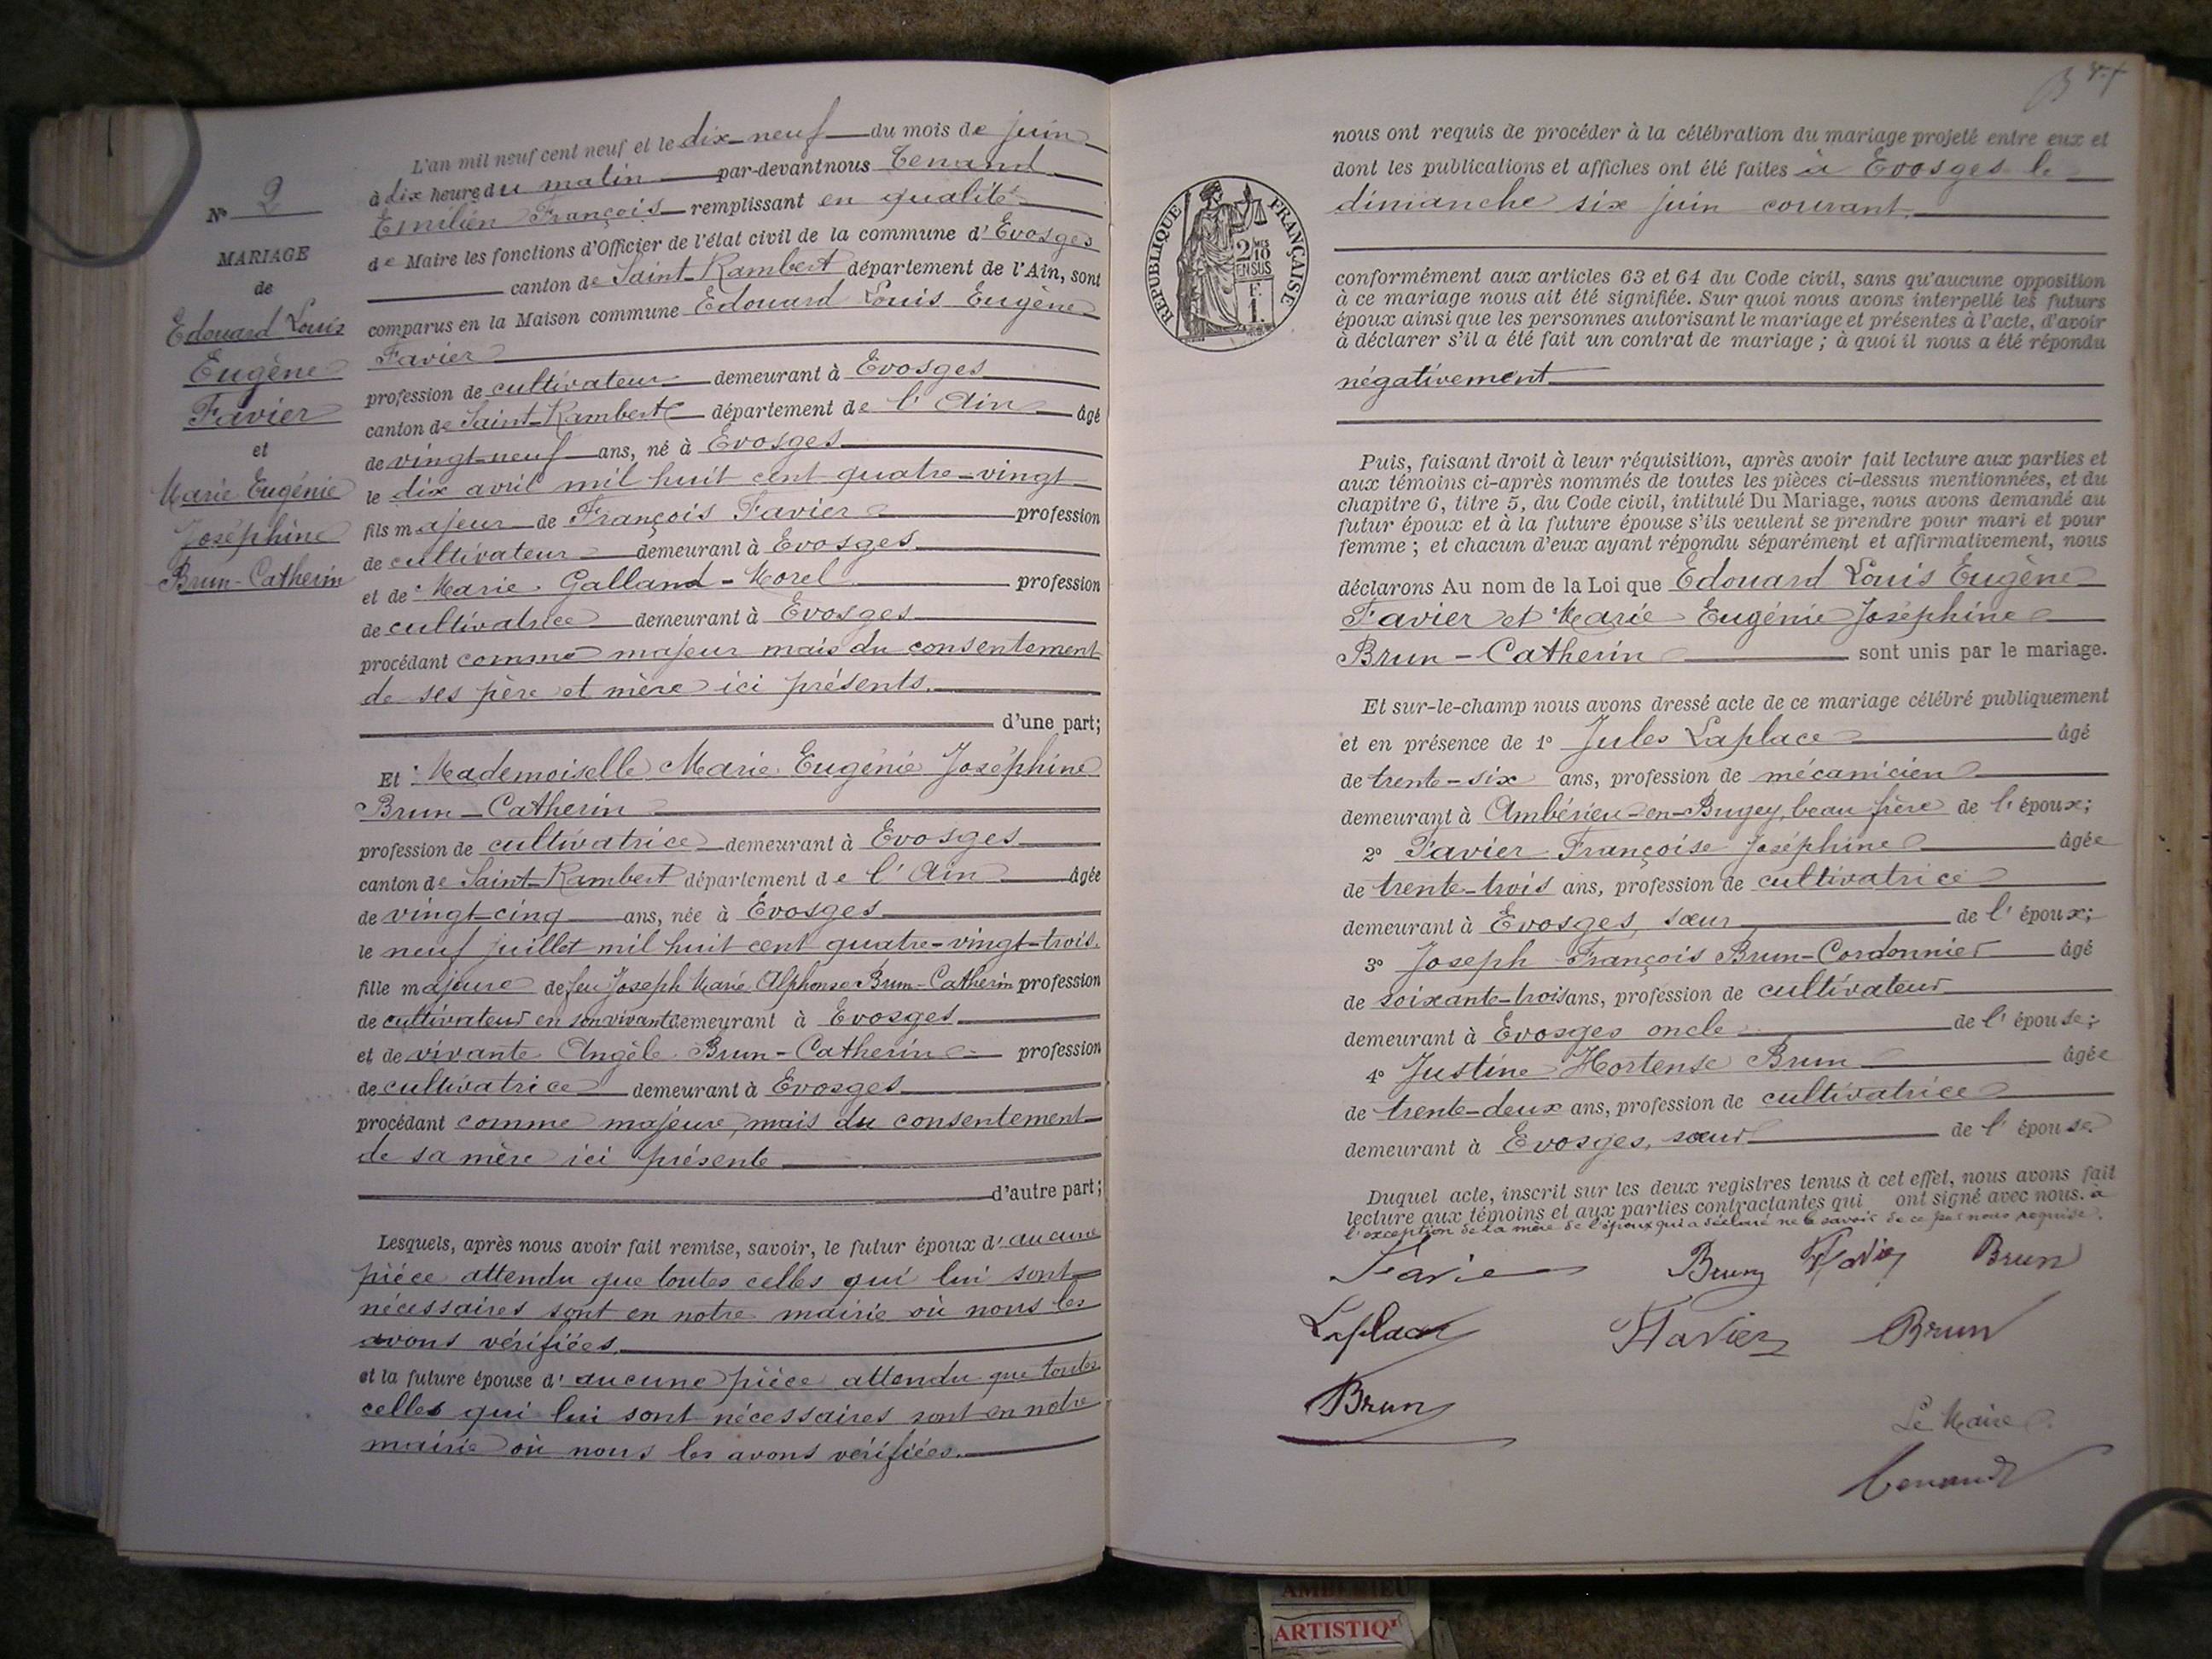 N° 2
MARIAGE
de
Edouard Louis
Eugène
Favier
et
Marie Eugénie
Joséphine
Brun-Catherin
L'an mil neuf cent neuf et le dix-neuf du mois de juin
à dix heures du matin par-devant nous Tenand
Emilien François remplissant en qualité
de Maire les fonctions d'Officier de l'état civil de la commune d'Evosges
canton de Saint-Rambert département de l'Ain, sont
comparus en la Maison commune Edouard Louis Eugène
Favier
profession de cultivateur demeurant à Evosges
canton de Saint-Rambert département de l'Ain âgé
de vingt-neuf ans, né à Evosges
le dix avril mil huit cent quatre-vingt
fils majeur de François Favier profession
de cultivateur demeurant à Evosges
et de Marie Galland-Morel profession
de cultivatrice demeurant à Evosges
procédant comme majeur mais du consentement
de ses père et mère ici présents.
d'une part;
Et Mademoiselle Marie Eugénie Joséphine
Brun-Catherin
profession de cultivatrice demeurant à Evosges
canton de Saint-Rambert département de l'Ain âgée
de vingt-cinq ans, née à Evosges
le neuf juillet mil huit cent quatre-vingt-trois.
fille majeure de feu Joseph Marie Alphonse Brun-Catherin profession
de cultivateur en son vivant demeurant à Evosges
et de vivante Angèle Brun-Catherin profession
de cultivatrice demeurant à Evosges
procédant comme majeure, mais du consentement
de sa mère ici présente
d'autre part;
Lesquels, après nous avoir fait remise, savoir, le futur époux d'aucune
pièce attendu que toutes celles qui lui sont
nécessaires sont en notre mairie où nous les
avons vérifiées.
et la future épouse d'aucune pièce attendu que toutes
celles qui lui sont nécessaires sont en notre
mairie où nous les avons vérifiées.
RÉPUBLIQUE FRANÇAISE
2/10
EN SUS
F.
1.
nous ont requis de procéder à la célébration du mariage projeté entre eux et
dont les publications et affiches ont été faites à Evosges le
dimanche six juin courant.
conformément aux articles 63 et 64 du Code civil, sans qu'aucune opposition
à ce mariage nous ait été signifiée. Sur quoi nous avons interpellé les futurs
époux ainsi que les personnes autorisant le mariage et présentes à l'acte, d'avoir
à déclarer s'il a été fait un contrat de mariage; à quoi il nous a été répondu
négativement
Puis, faisant droit à leur réquisition, après avoir fait lecture aux parties et
aux témoins ci-après nommés de toutes les pièces ci-dessus mentionnées, et du
chapitre 6, titre 5, du Code civil, intitulé Du Mariage, nous avons demandé au
futur époux et à la future épouse s'ils veulent se prendre pour mari et pour
femme; et chacun d'eux ayant répondu séparément et affirmativement, nous
déclarons Au nom de la Loi que Edouard Louis Eugène
Favier et Marie Eugénie Joséphine
Brun-Catherin sont unis par le mariage.
Et sur-le-champ nous avons dressé acte de ce mariage célébré publiquement
et en présence de 1° Jules Laplace âgé
de trente-six ans, profession de mécanicien
demeurant à Ambérieu-en-Bugey, beau frère de l'époux;
2° Favier Françoise Joséphine âgée
de trente-trois ans, profession de cultivatrice
demeurant à Evosges, sœur de l'époux;
3° Joseph François Brun-Cordonnier âgé
de soixante-trois ans, profession de cultivateur
demeurant à Evosges oncle de l'épouse;
4° Justine Hortense Brun âgée
de trente-deux ans, profession de cultivatrice
demeurant à Evosges, sœur de l'épouse
Duquel acte, inscrit sur les deux registres tenus à cet effet, nous avons fait
lecture aux témoins et aux parties contractantes qui ont signé avec nous. à
l'exception de la mère de l'époux qui a déclaré ne le savoir de ce par nous requise.
Favier Brun Favier Brun
Laplace Favier Brun
Brun
Le Maire
Tenand
AMBERIEU
ARTISTIQ